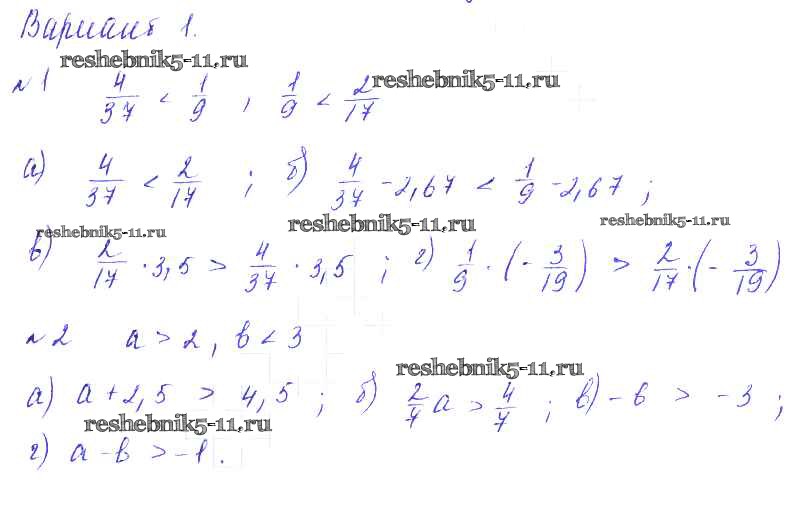 Вариант 1.
reshebnik5-11.ru
№1 4/37 < 1/9 , 1/9 < 2/17
reshebnik5-11.ru
а) 4/37 < 2/17 ; б) 4/37 - 2,67 < 1/9 - 2,67 ;
reshebnik5-11.ru
reshebnik5-11.ru
reshebnik5-11.ru
в) 2/17 · 3,5 > 4/37 · 3,5 ; г) 1/9 · (- 3/19) > 2/17 · (- 3/19)
№2 а > 2 , в < 3
reshebnik5-11.ru
а) а + 2,5 > 4,5 ; б) 2/7 а > 4/7 ; в) - в > - 3 ;
reshebnik5-11.ru
г) а - в > - 1 .